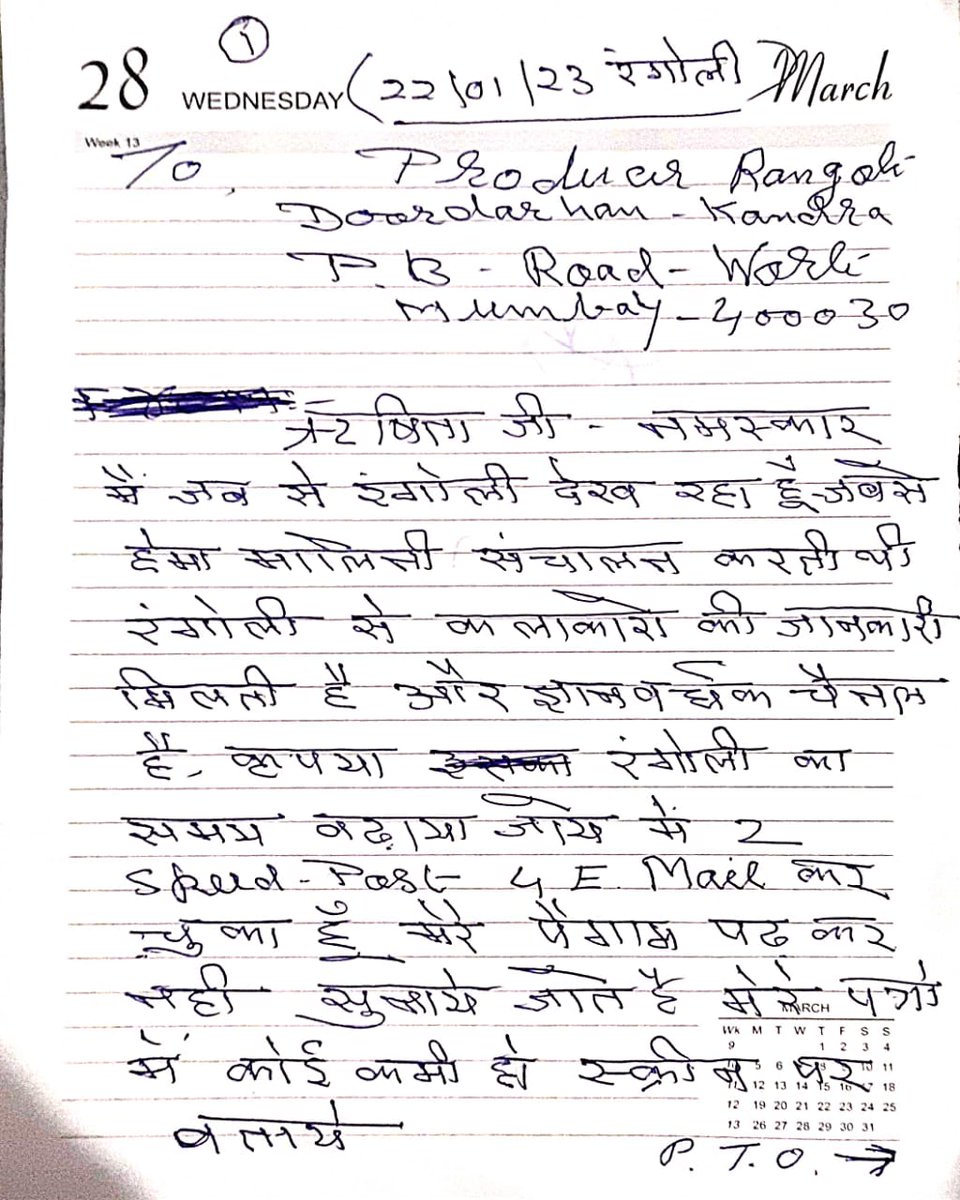 1
28 WEDNESDAY (22/01/23 रंगोली March
Week 13
To, Producer Rangoli
Doordarhan - Kandra
P.B - Road - Worli
Mumbay - 400030
ऋषिता जी - नमस्कार
मैं जब से रंगोली देख रहा हूँ जबसे
हेमा मालिनी संचालन करती थी
रंगोली से कलाकारो की जानकारी
मिलती है और ज्ञानवर्धक चैनल
है, कृपया इसका रंगोली का
समय बढ़ाया जाये मैं 2
Speed-Post 4 E. Mail कर
चुका हूँ मेरे पैगाम पढ कर
नही सुनाये जाते है मेरे पत्रो
में कोई कमी हो स्क्रीन पर
बताये
MARCH
Wk M T W T F S S
9 1 2 3 4
5 6 10 11
12 13 14 15 16 17 18
12 19 20 21 22 23 24 25
13 26 27 28 29 30 31
P. T. O. →